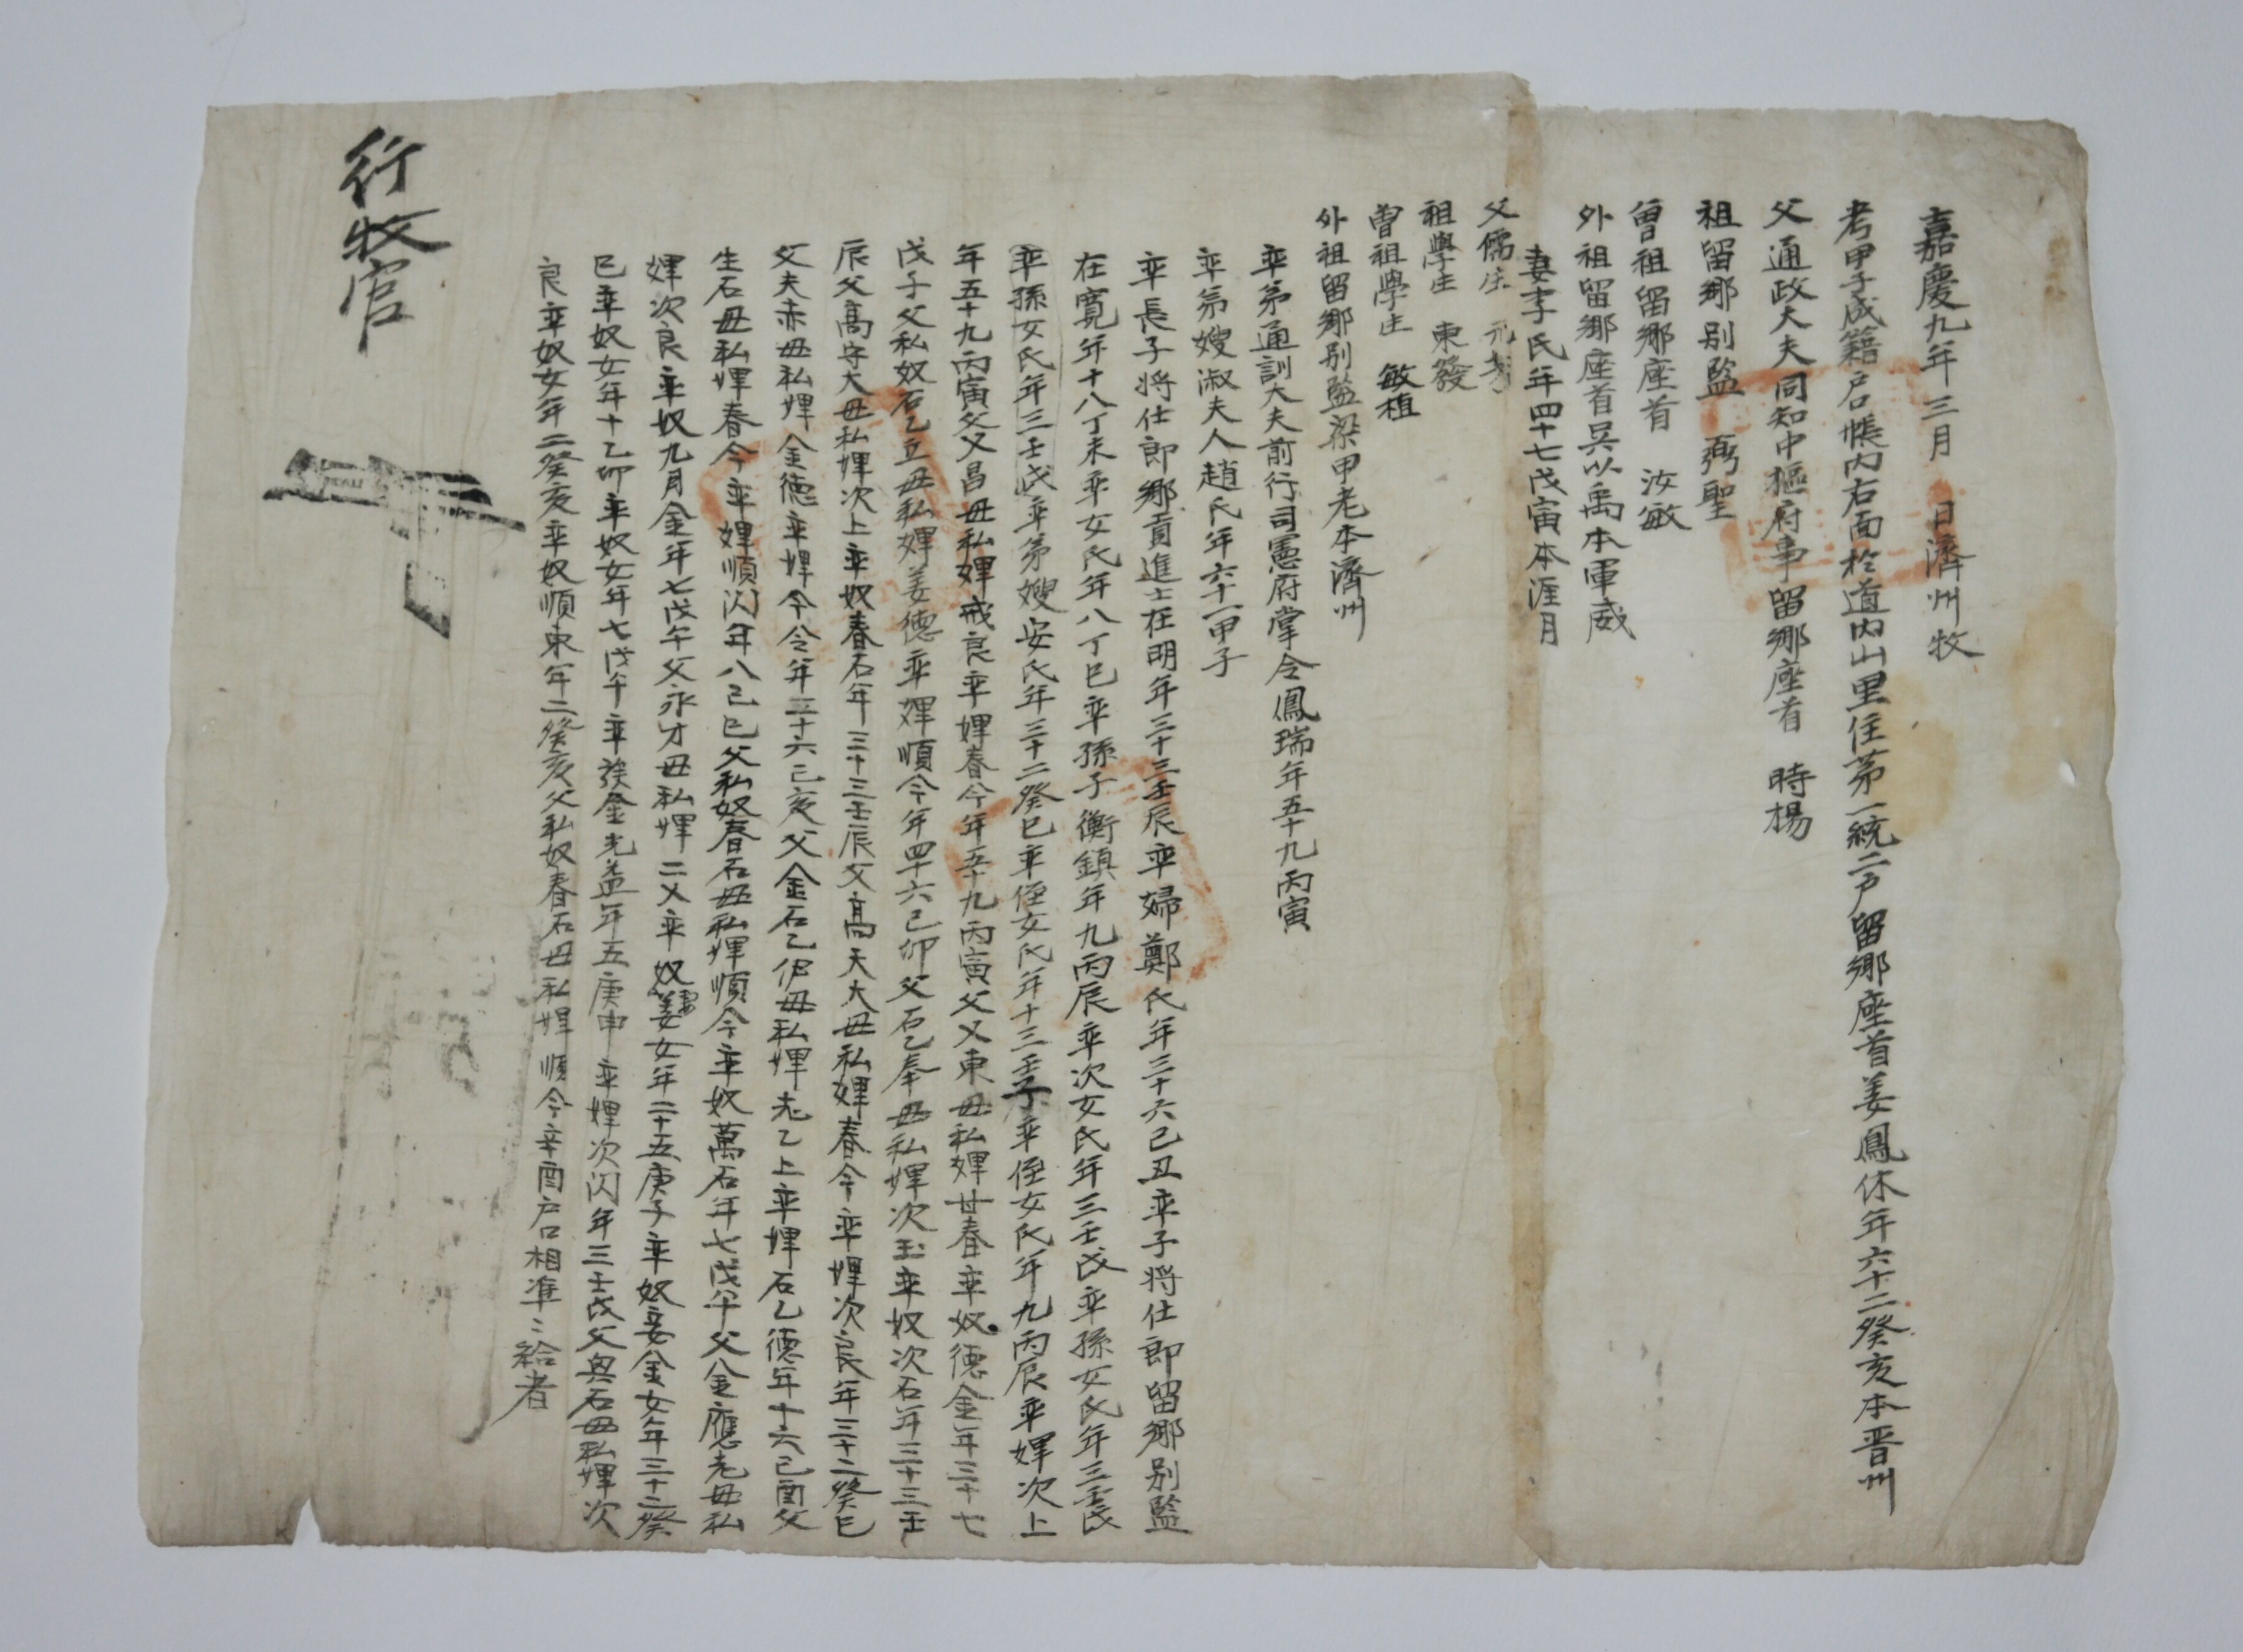 嘉慶九年三月 日濟州牧
考甲子成籍戶帳內右面於道內山里住第一統二戶留鄉座首姜鳳休年六十二癸亥本晋州
父通政大夫同知中樞府事留鄉座首 時楊
祖留鄉別監 弼聖
曾祖留鄉座首 汝敏
外祖留鄉座首吳以禹本軍威
妻李氏年四十七戊寅本涯月
父儒生 元芳
祖學生 東發
曾祖學生 敏植
外祖留鄉別監梁甲老本濟州
率弟通訓大夫前行司憲府掌令鳳瑞年五十九丙寅
率弟嫂淑夫人趙氏年六十一甲子
率長子將仕郎鄉貢進士在明年三十三壬辰率婦鄭氏年三十六己丑率子將仕郎留鄉別監
在寬年十八丁未率女氏年八丁巳率孫子衡鎮年九丙辰率次女氏年三壬戌率孫女氏年三壬戌
率孫女氏年三壬戌率弟嫂安氏年三十二癸巳率侄女氏年十三壬子率侄女氏年九丙辰率婢次上
年五十九丙寅父父昌毋私婢戒良率婢春今年五十九丙寅父父東毋私婢廿春率奴德金年三十七
戊子父私奴石乙立毋私婢姜德率婢順今年四十六己卯父石乙奉毋私婢次玉率奴次石年三十三壬
辰父高守大毋私婢次上率奴春石年三十三壬辰父高天大毋私婢春今率婢次良年三十二癸巳
父夫赤毋私婢金德率婢今今年二十六己亥父金石乙伊毋私婢老乙上率婢石乙德年十六己酉父
生石毋私婢春今率婢順閃年八己巳父私奴春石毋私婢順今率奴萬石年七戊午父金應老毋私
婢次良率奴九月金年七戊午父永才毋私婢二父率奴妻姜女年二十五庚子率奴妻金女年三十二癸
巳率奴女年十乙卯率奴女年七戊午率族金光益年五庚申 率婢次閃年三壬戌父與石毋私婢次
良率奴女年二癸亥率奴順東年二癸亥父私奴春石毋私婢順今辛酉戶口相準ミ給者
行牧官